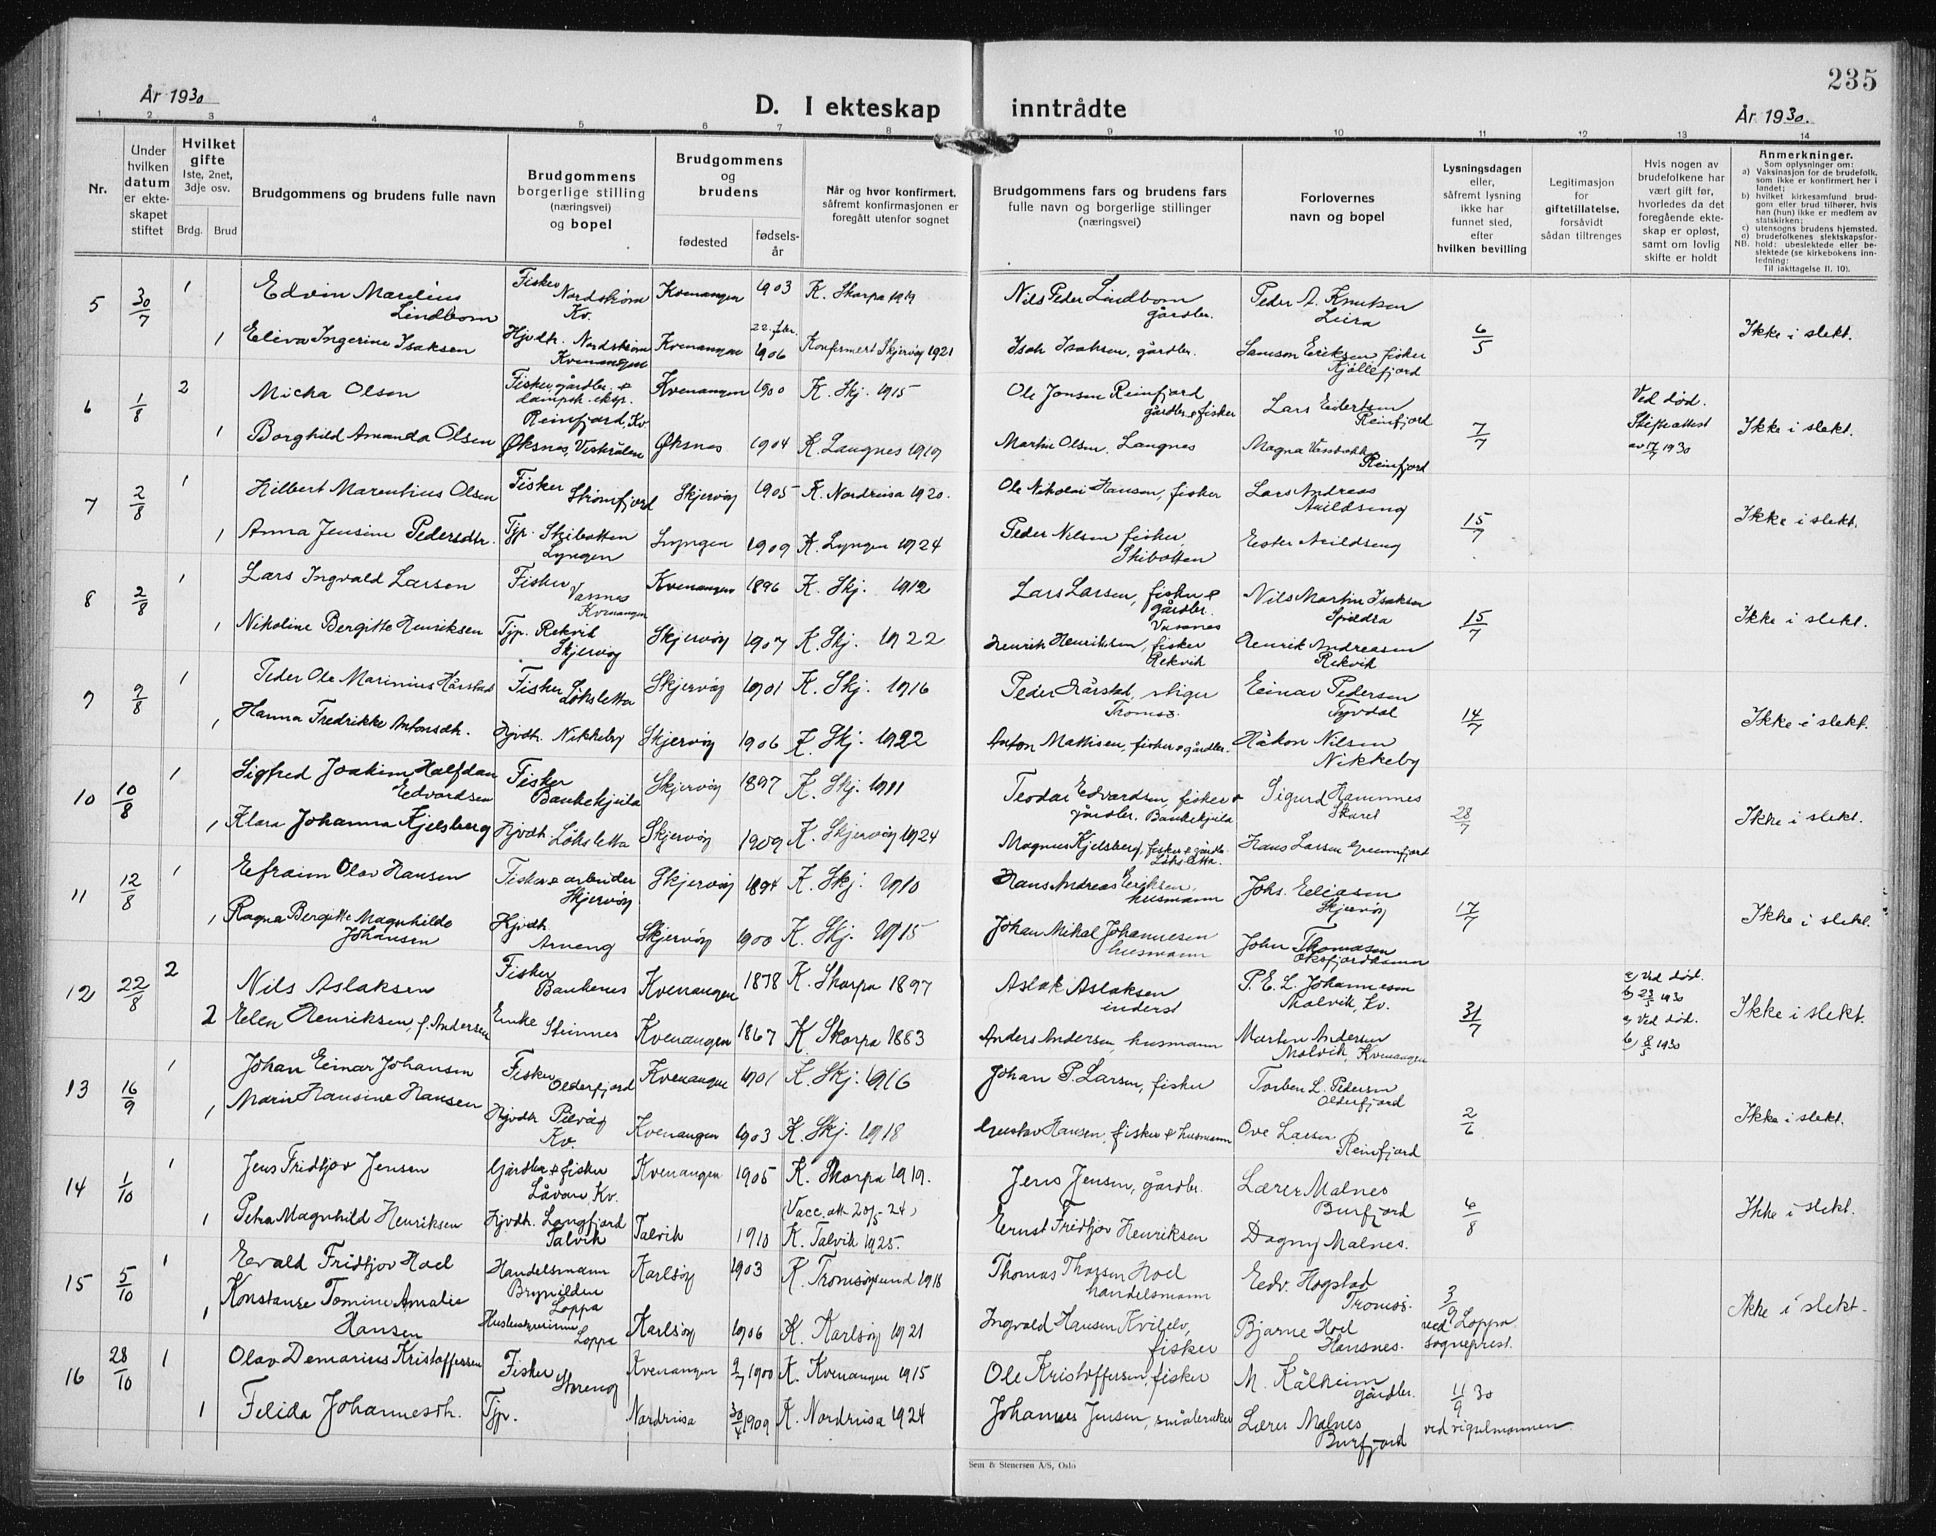 235
År 1930
D. I ekteskap inntrådte
År 1930.
1 2 3 4 5 6 7 8 9 10 11 12 13 14
Nr.
Under hvilken datum er ekteskapet stiftet
Hvilket gifte
1ste, 2net, 3dje osv.
Brdg. Brud
Brudgommens og brudens fulle navn
Brudgommens borgerlige stilling (næringsvei) og bopel
Brudgommens og brudens
fødested
fødselsår
Når og hvor konfirmert, såfremt konfirmasjonen er foregått utenfor sognet
Brudgommens fars og brudens fars fulle navn og borgerlige stillinger (næringsvei)
Forlovernes navn og bopel
Lysningsdagen eller, såfremt lysning ikke har funnet sted, efter hvilken bevilling
Legitimasjon for giftetillatelse, forsåvidt sådan tiltrenges
Hvis nogen av brudefolkene har vært gift før, hvorledes da det foregående ekteskap er opløst, samt om lovlig skifte er holdt
Anmerkninger.
Som oplysninger om:
a) Vaksinasjon for de brudefolk, som ikke er konfirmert her i landet;
b) hvilket kirkesamfund brudgom eller brud tilhører, hvis han (hun) ikke er medlem av statskirken;
c) utensogns brudens hjemsted.
d) brudefolkenes slektskapsforhold: ubeslektede eller beslektede (se kirkebokens innledning:
NB.
Til iakttagelse II. 10).
5 30/7 1 Edvin Marelius Lindbom Fisker Nordstrøm Kv. Kvenangen 1903 K. Skorpa 1919 Nils Peder Lindbom gårdbr. Peder A. Knutsen Leira
1 Eliva Ingerine Isaksen Hjvdtr. Nordstrøm Kvenangen Kvenangen 22. fbr. 1906 Konfermert Skjervøy 1921 Isak Isaksen, gårdbr. Samson Eriksen fisker Kjøllefjord 6/5 Ikke i slekt.
6 1/8 2 Micha Olsen Fisker, gårdbr. & dampsk. eksp. Reinfjord, Kv Kvenangen 1900 K. Skj. 1915 Ole Jonsen Reinfjord gårdbr & fisker Lars Eilertsen Reinfjord Ved død.
1 Borghild Amanda Olsen Øksnes, Vesterålen Øksnes 1904 K. Langnes 1919 Martin Olsen, Langnes Magna Reinfjord 7/7 Skifteattest av 17/7 1930 Ikke i slekt.
7 2/8 1 Hilbert Marentius Olsen Fisker Strømfjord Skjervøy 1905 K. Nordreisa 1920. Ole Nikolai Hansen, fisker Lars Andreas Avildseng
1 Anna Jensine Pedersdtr. Tjp. Skibotten Lyngen Lyngen 1909 K. Lyngen 1924 Peder Nilsen fisker, Skibotten Ester Avildseng 15/7 Ikke i slekt.
8 2/8 1 Lars Ingvald Larsen Fisker Vasnes Kvenangen Kvenangen 1896 K. Skj. 1912 Lars Larsen, fisker & gårdbr. Vasnes Nils Martin Isaksen Spildra
1 Nikoline Bergitte Henriksen Tjp. Rekvik Skjervøy Skjervøy 1907 K. Skj. 1922 Henrik Henriksen, fisker Rekvik Henrik Andreasen Rekvik 15/7 Ikke i slekt.
9 9/8 1 Peder Ole Marinius Hårstad Fisker Løksletta Skjervøy 1901 K. Skj. 1916 Peder Hårstad, stiger Tromsø. Einar Pedersen Tyvdal
1 Hanna Fredrikke Antonsdtr. Hjvdtr. Nikkeby Skjervøy 1906 K. Skj. 1922 Anton Mathisen, fisker & gårdbr. Håkon Nilsen Nikkeby 14/7 Ikke i slekt.
10 10/8 1 Sigfred Joakim Halfdan Edvardsen Fisker Bankekjeila Skjervøy 1897 K. Skj. 1911 Teodor Edvardsen, fisker & gårdbr. Bankekjeila Sigurd Hamnnes Skaret
1 Klara Johanna Kjelsberg Hjvdtr. Løksletta Skjervøy 1909 K. Skjervøy 1924 Magnus Kjelsberg, fisker & gårdbr. Løksletta. Hans Larsen Grunnfjord 28/7 Ikke i slekt.
11 12/8 1 Efraim Olav Hansen Fisker & arbeider Skjervøy Skjervøy 1894 K. Skj. 1910 Hans Andreas Eriksen, husmann Johs. Eliasen Skjervøy
1 Ragna Bergitte Magnhilde Johansen Hjvdtr. Arneng Skjervøy 1900 K. Skj. 1915 Johan Mikal Johannesen husmann Johan Thomasen Oksfjordhamn 17/7 Ikke i slekt.
12 22/8 2 Nils Aslaksen Fisker Bankenes Kvenangen 1878 K. Skorpa 1897 Aslak Aslaksen inderst P. E. L. Johannesen Malvik, Kv. a) Ved død. b) 23/5 1930
2 Elen Henriksen, f. Andersen Enke Steinnes Kvenangen 1867 K. Skorpa 1883 Anders Andersen, husmann Marten Andersen Malvik, Kvenangen 31/7 a) Ved død. b) 8/5 1930 Ikke i slekt.
13 16/9 1 Johan Einar Johansen Fisker Olderfjord Kvenangen 1901 K. Skj. 1916 Johan P. Larsen, fisker Torben L. Pedersen Olderfjord
1 Marie Hansine Hansen Hjvdtr Kv Kvenangen 1903 K. Skj. 1918 Gustav Hansen, fisker & husmann Ove Larsen Reinfjord 2/6 Ikke i slekt.
14 1/10 1 Jens Fridtjov Jensen Gårdbr & fisker Låvan Kv. Kvenangen 1905 K. Skorpa 1919. Jens Jensen, gårdbr. Lærer Malnes Burfjord
1 Petra Magnhild Henriksen Hjvdtr. Langfjord Talvik Talvik 1910 (Vacc. att. 20/5-24) K. Talvik 1925. Ernst Fridtjov Henriksen Dagny Malnes. 6/8 Ikke i slekt.
15 5/10 1 Evald Fridtjov Hoel Handelsmann Brynilden Loppa Karlsøy 1903 K. Tromsøysund 1918 Thomas Hoel handelsmann Edv. Hogstad Tromsø. 3/9
1 Konstanse Tomine Amalie Hansen Loppa Karlsøy 1906 K. Karlsøy 1921 Ingvald Hansen fisker Bjarne Hoel Hansnes. ved Loppa sogneprest. Ikke i slekt.
16 28/10 1 Olav Demarius Kristoffersen Fisker Storeng Kvenangen 2/7 1900 K. Kvenangen 1915 Ole Kristoffersen, fisker M. Kålheim gårdbr. 11/9 30
1 Felida Johannesdtr. Tjp. Nordreisa 30/4 1909 K. Nordreisa 1924 Johannes Jensen, småbruker Lærer Malnes Burfjord ved rigselmannen
Sem & Stenersen A/S, Oslo